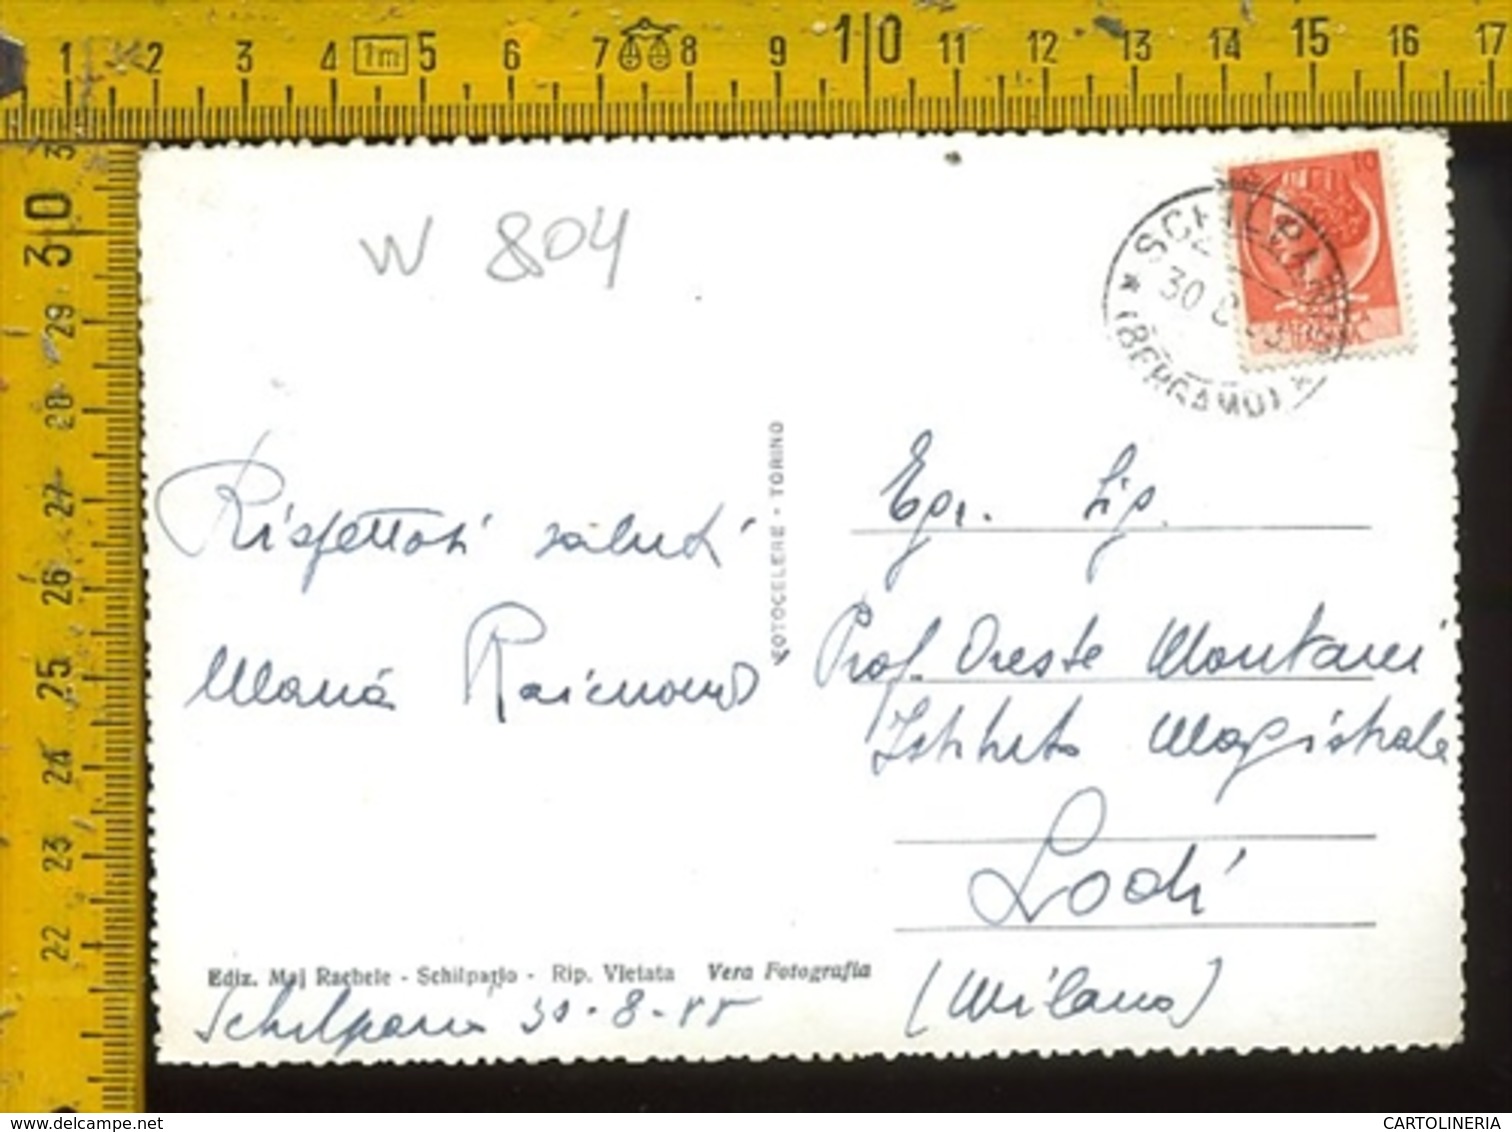 1 2 3 4 1m 5 6 7 8 9 10 11 12 13 14 15 16 17
3
30
29
28
27
26
25
24
23
22
W 804
10
SCHILPARIO
30 8
* (BERGAMO) *
Rispettosi saluti
Maria Raimondi
FOTOCELERE - TORINO
Egr. Sig.
Prof. Oreste Montani
Istituto Magistrale
Lodi
(Milano)
Ediz. Maj Rachele - Schilpario - Rip. Vietata Vera Fotografia
Schilpario 30-8-55
www.delcampe.net
CARTOLINERIA